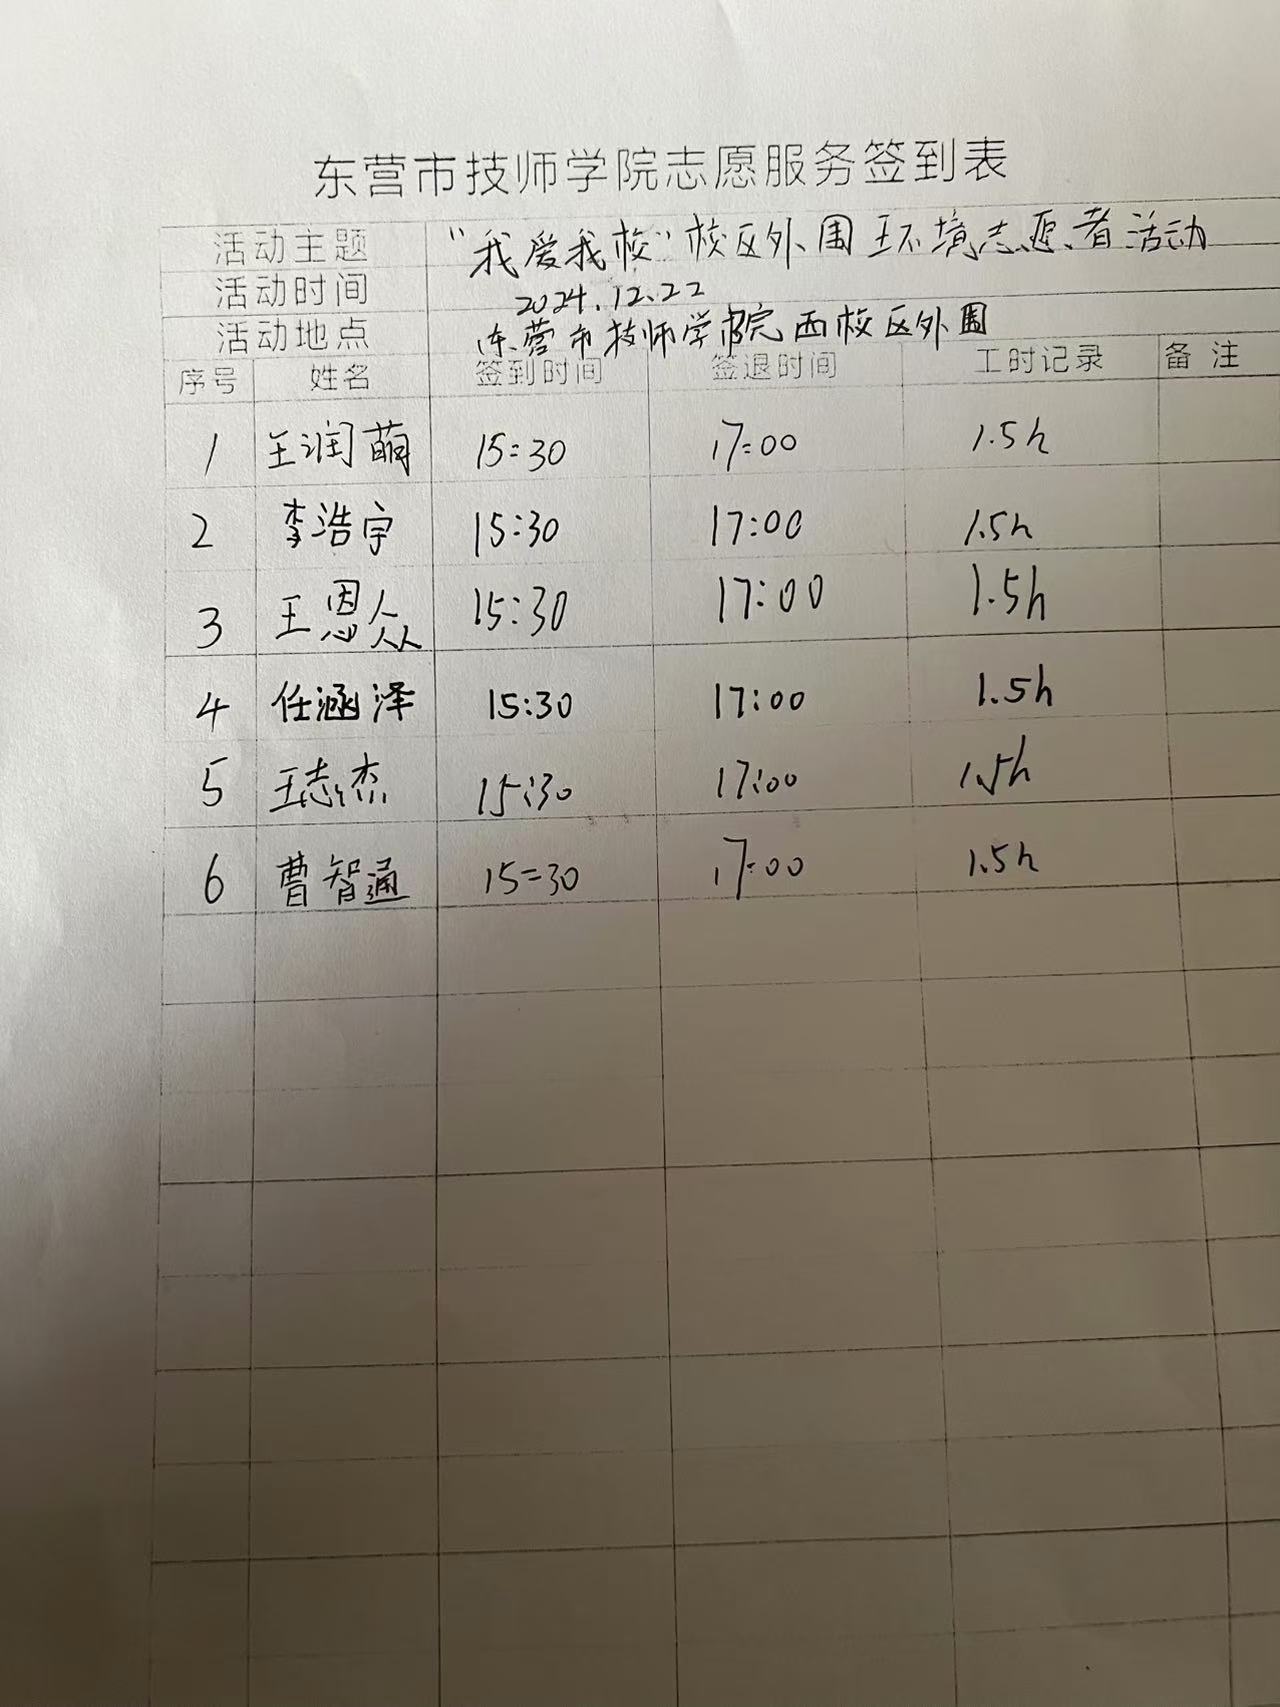 东营市技师学院志愿服务签到表
活动主题 “我爱我校”校区外围环境志愿者活动
活动时间 2024.12.22
活动地点 东营市技师学院西校区外围
序号 姓名 签到时间 签退时间 工时记录 备注
1 王润萌 15:30 17:00 1.5h
2 李浩宇 15:30 17:00 1.5h
3 王恩众 15:30 17:00 1.5h
4 任涵泽 15:30 17:00 1.5h
5 王志杰 15:30 17:00 1.5h
6 曹智通 15:30 17:00 1.5h